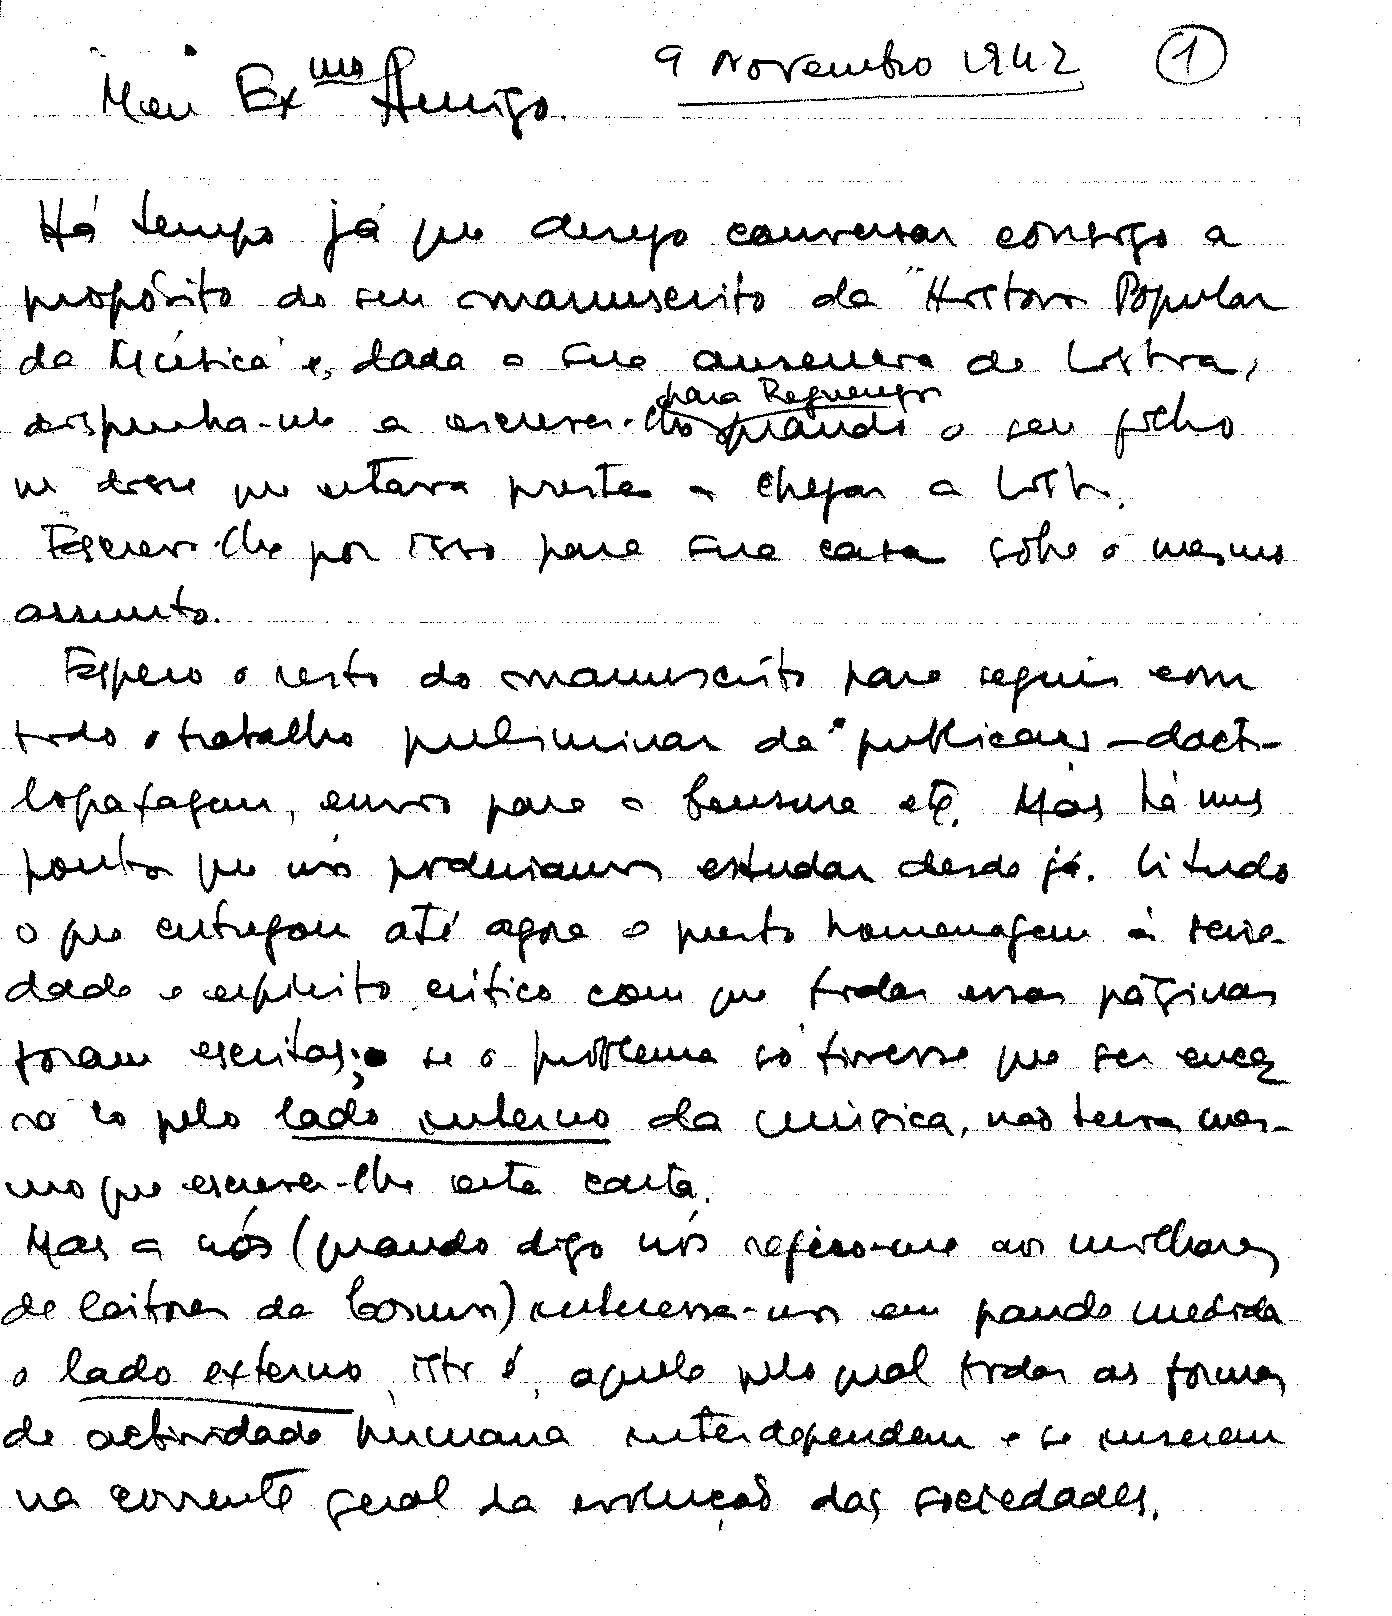 9 Novembro 1942 1
Meu Exmo Amigo.
Há tempo já que desejo conversar consigo a
propósito do seu manuscrito da "História Popular
da Música" e, dada a sua ausencia de Lisboa,
dispunha-me a escrever-lhe para Reguengos quando o seu filho
me disse que estava prestes a chegar a Lisb.
Escrevi-lhe por isso para sua casa sôbre o mesmo
assunto.
Espero o resto do manuscrito para seguir com
todo o trabalho preliminar da publicação - dacti-
lografagem, envio para a Censura etc. Mas há uns
pontos que nós poderiamos estudar desde já. Li tudo
o que entregou até agora e presto homenagem à serie-
dade e espírito crítico com que todas essas páginas
foram escritas; se o problema só tivesse que ser enca-
rado pelo lado interno da música, não teria mes-
mo que escrever-lhe esta carta.
Mas a nós (quando digo nós refiro-me aos milhares
de leitores da Cosmos) interessa-nos em grande medida
o lado externo, isto é, aquele pelo qual todas as formas
de actividade humana interdependem e se inserem
na corrente geral da evolução das sociedades.